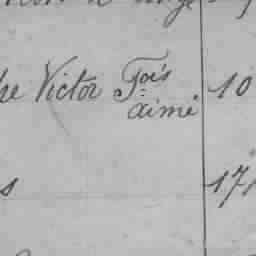 re Victor Fçois
aimé
10
s
171